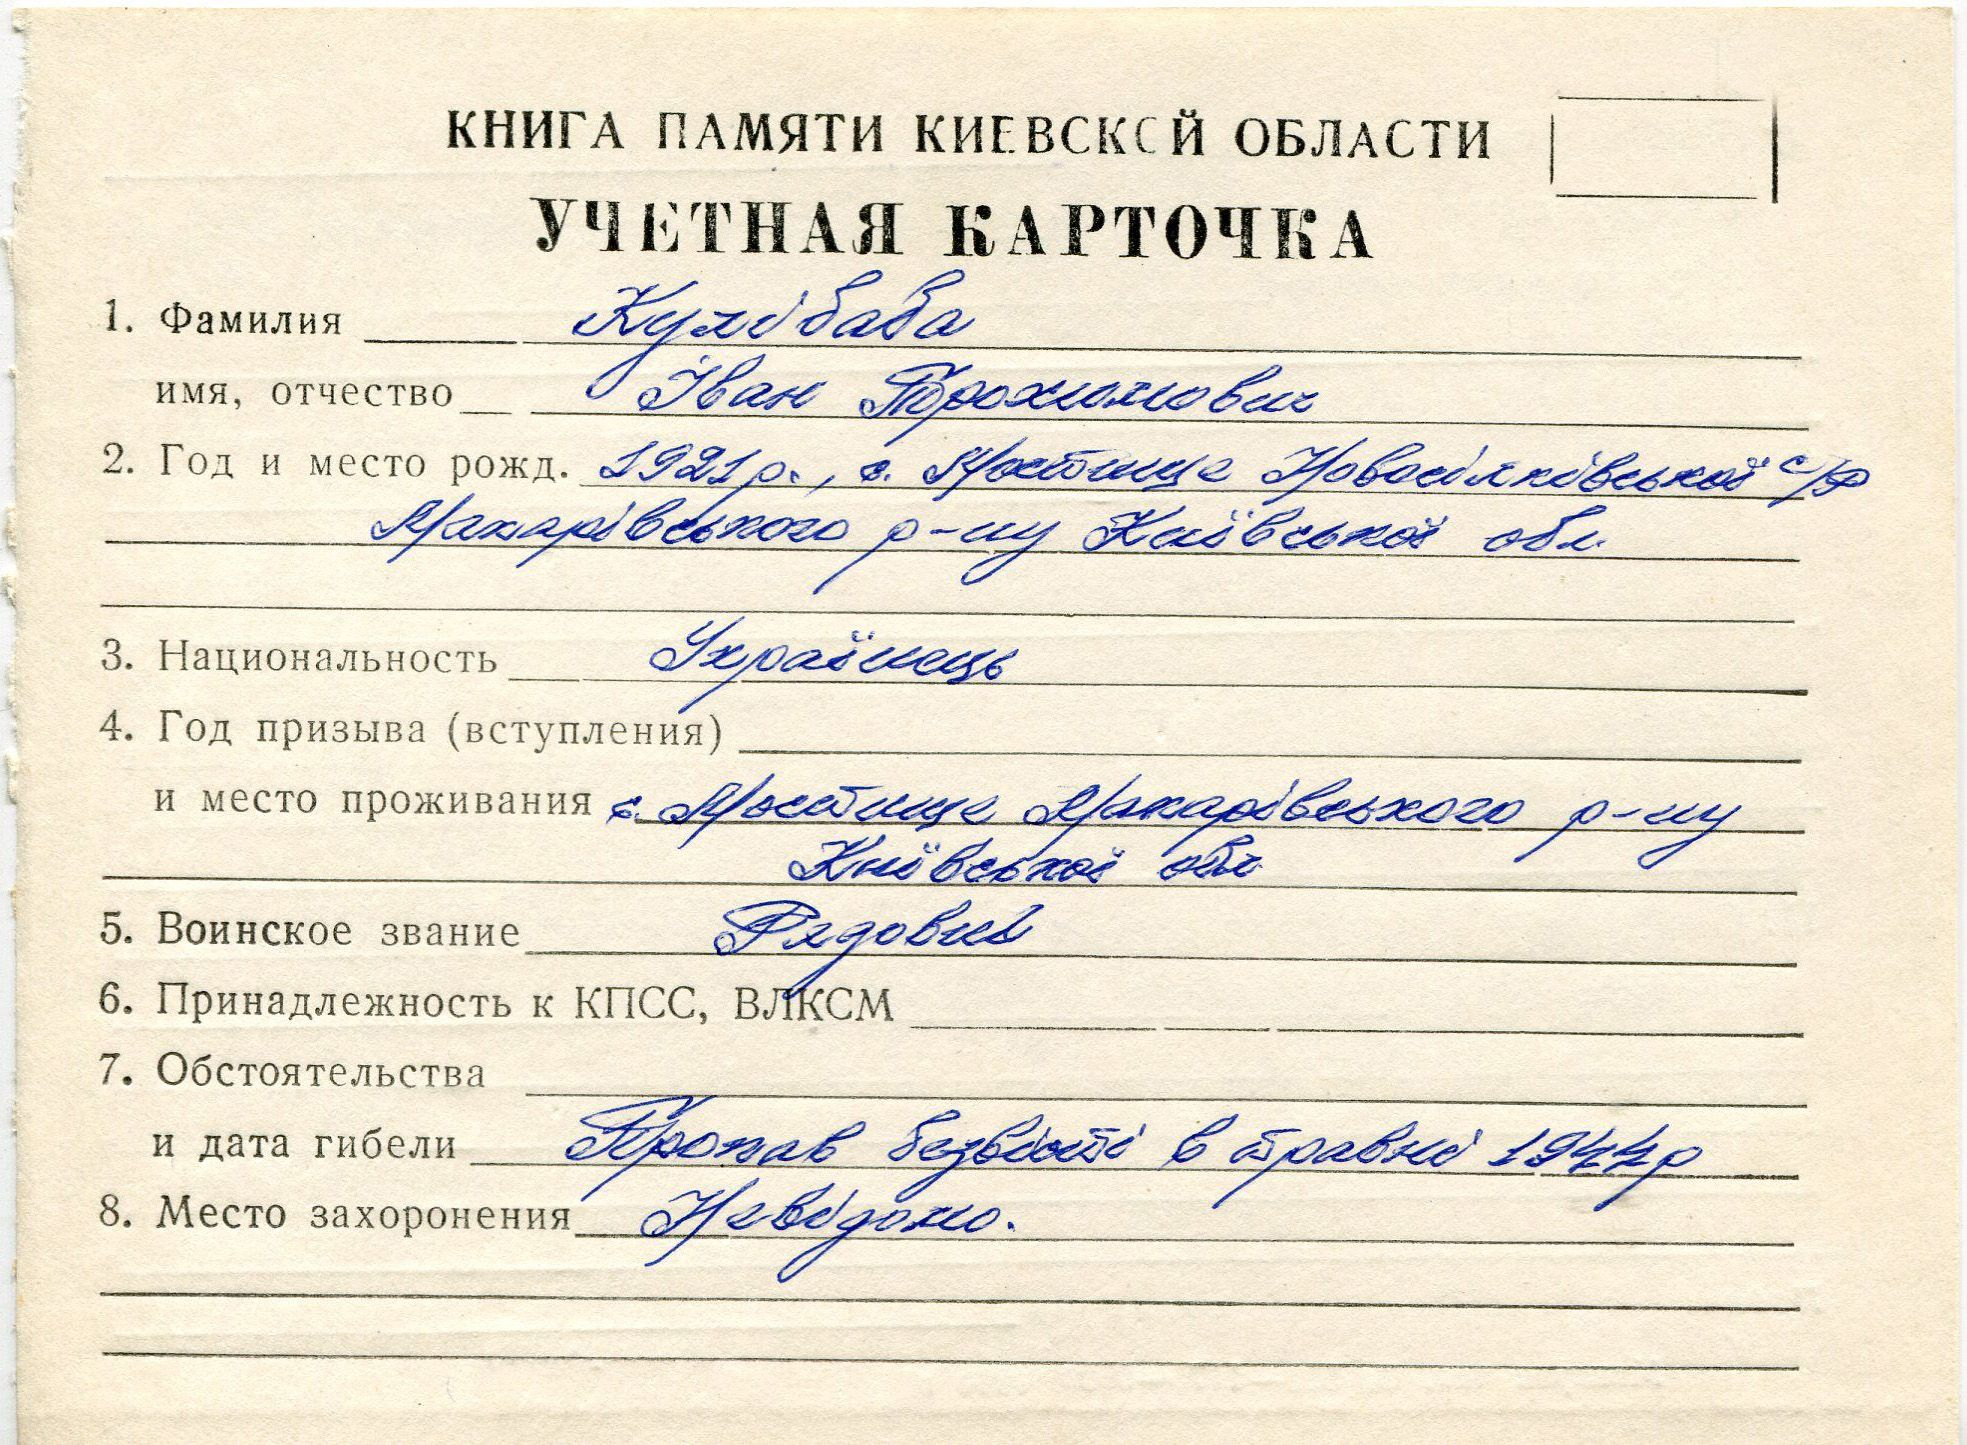 КНИГА ПАМЯТИ КИЕВСКОЙ ОБЛАСТИ
УЧЕТНАЯ КАРТОЧКА
1. Фамилия Кулібаба
имя, отчество Іван Трохимович
2. Год и место рожд. 1921 р., с. Мостище Новосілківської с/р
Макарівського р-ну Київської обл.
3. Национальность Українець
4. Год призыва (вступления)
и место проживания с. Мостище Макарівського р-ну
Київської обл
5. Воинское звание Рядовий
6. Принадлежность к КПСС, ВЛКСМ
7. Обстоятельства
и дата гибели Пропав безвісті в травні 1944р
8. Место захоронения Невідомо.